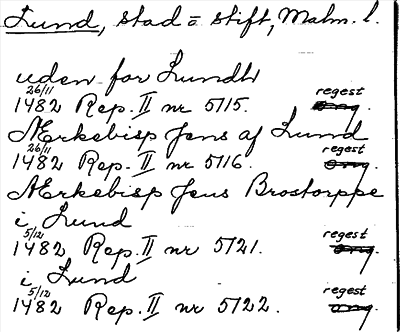 Lund, stad o stift, Malm. l.
uden for Lundh
26/11 regest
1482 Rep. II nr 5115. orig.
Ærkebisp Jens af Lund
26/11 regest
1482 Rep. II nr 5116. orig.
Ærkebisp Jens Brostorppe
i Lund
5/12 regest
1482 Rep. II nr 5121. orig.
i Lund
5/12 regest
1482 Rep. II nr 5122. orig.